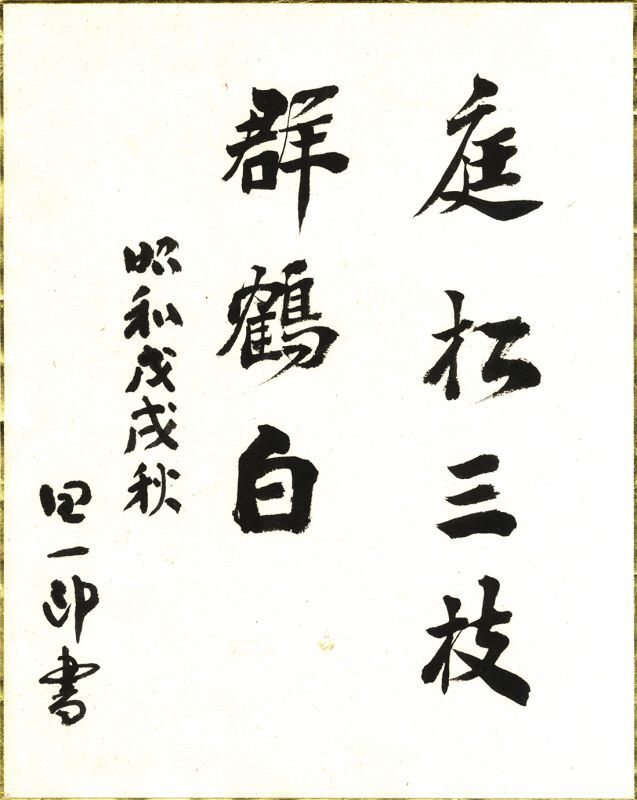 庭松三枝
群鶴白
昭和戊戌秋
田一郎書